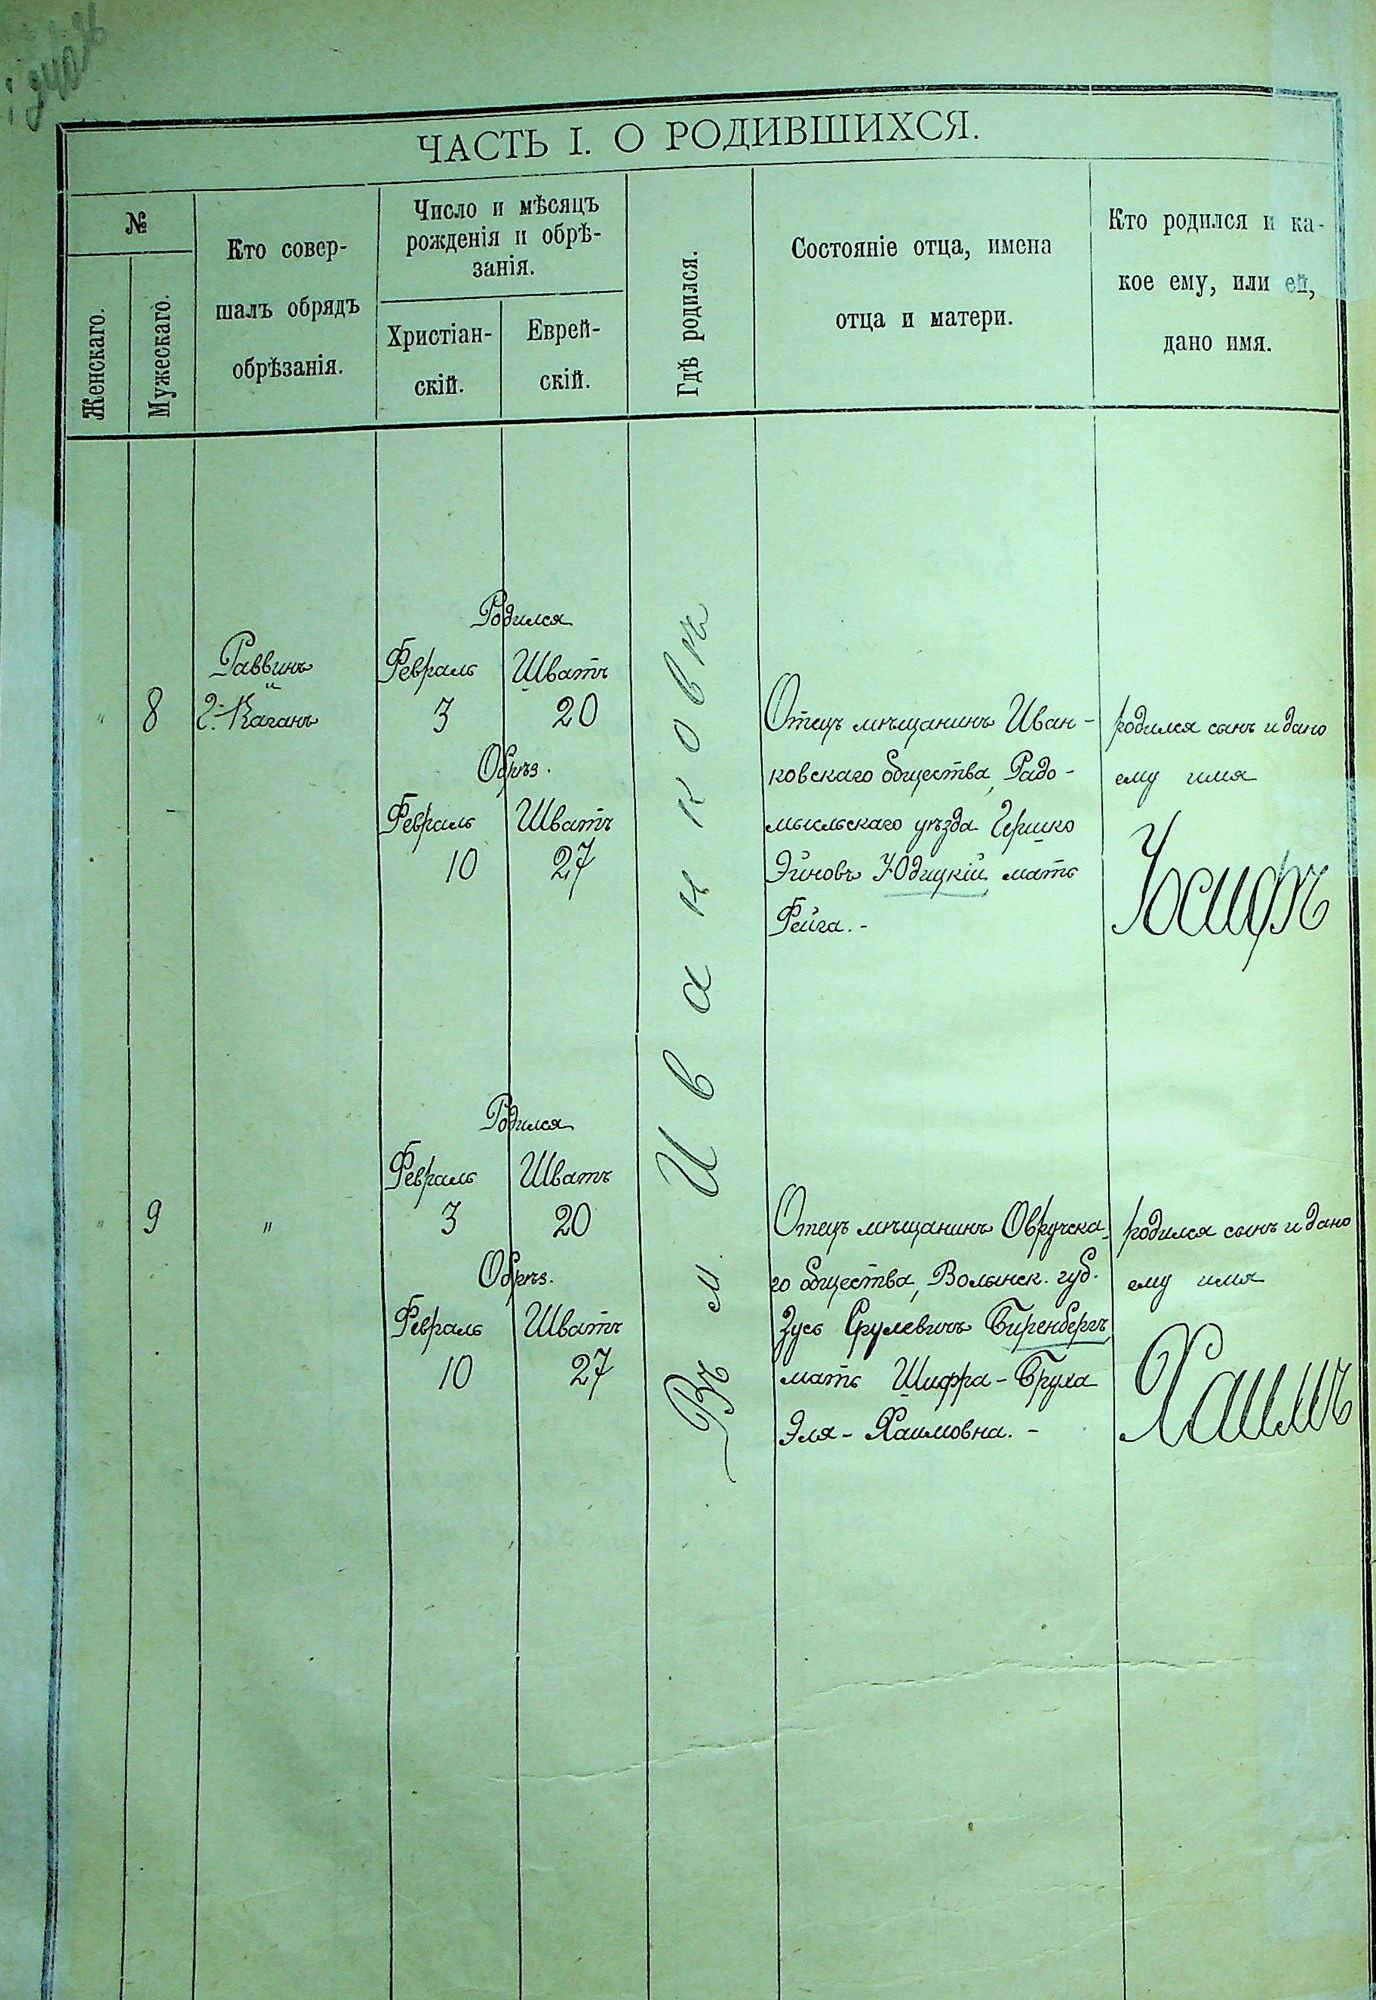 ЧАСТЬ I. О РОДИВШИХСЯ.
№
Женскаго.
Мужескаго.
Кто совер-
шалъ обрядъ
обрѣзанія.
Число и мѣсяцъ
рожденія и обрѣ-
занія.
Христіан-
скій.
Еврей-
скій.
Гдѣ родился.
Состояніе отца, имена
отца и матери.
Кто родился и ка-
кое ему, или ей,
дано имя.
" 8
Раввинъ
Г. Каганъ
Родился
Февраль Шватъ
3 20
Обрѣз.
Февраль Шватъ
10 27
Въ м. Иванковѣ
Отецъ мѣщанинъ Иван-
ковскаго общества, Радо-
мысльскаго уѣзда Гершко
Эйновъ Юдицкій, мать
Фейга. -
родился сынъ и дано
ему имя
Іосифъ
" 9
"
Родился
Февраль Шватъ
3 20
Обрѣз.
Февраль Шватъ
10 27
Отецъ мѣщанинъ Овручска-
го общества, Волынск. губ.
Зусь Срулевичъ Биренбергъ
мать Шифра-Бруха
Эля-Хаимовна. -
родился сынъ и дано
ему имя
Хаимъ